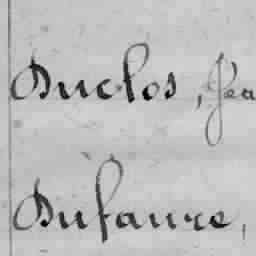 Duclos, Jea
Dufaure,